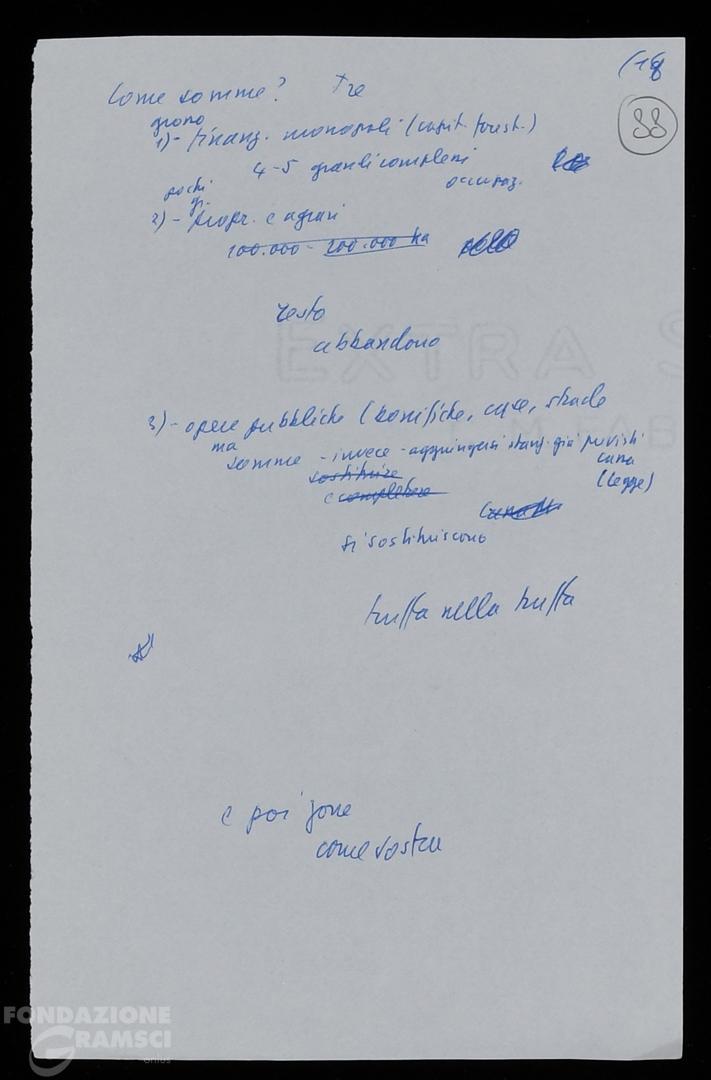 (18
88
Come somme? Tre
grosso
1) - finanz. monopoli (capit. forest.)
4-5 grandi complessi
occupaz.
pochi
gr.
2) - propr. e agrari
100.000 - 200.000 ha
resto
abbandono
3) - opere pubbliche (bonifiche, case, strade
ma
somme - invece - aggiungersi stanz. già previsti
cassa
(legge)
sostituire
e completare
si sostituiscono
truffa nella truffa
e poi zone
come vostra
EXTRA S
M FAB
FONDAZIONE
GRAMSCI
onlus